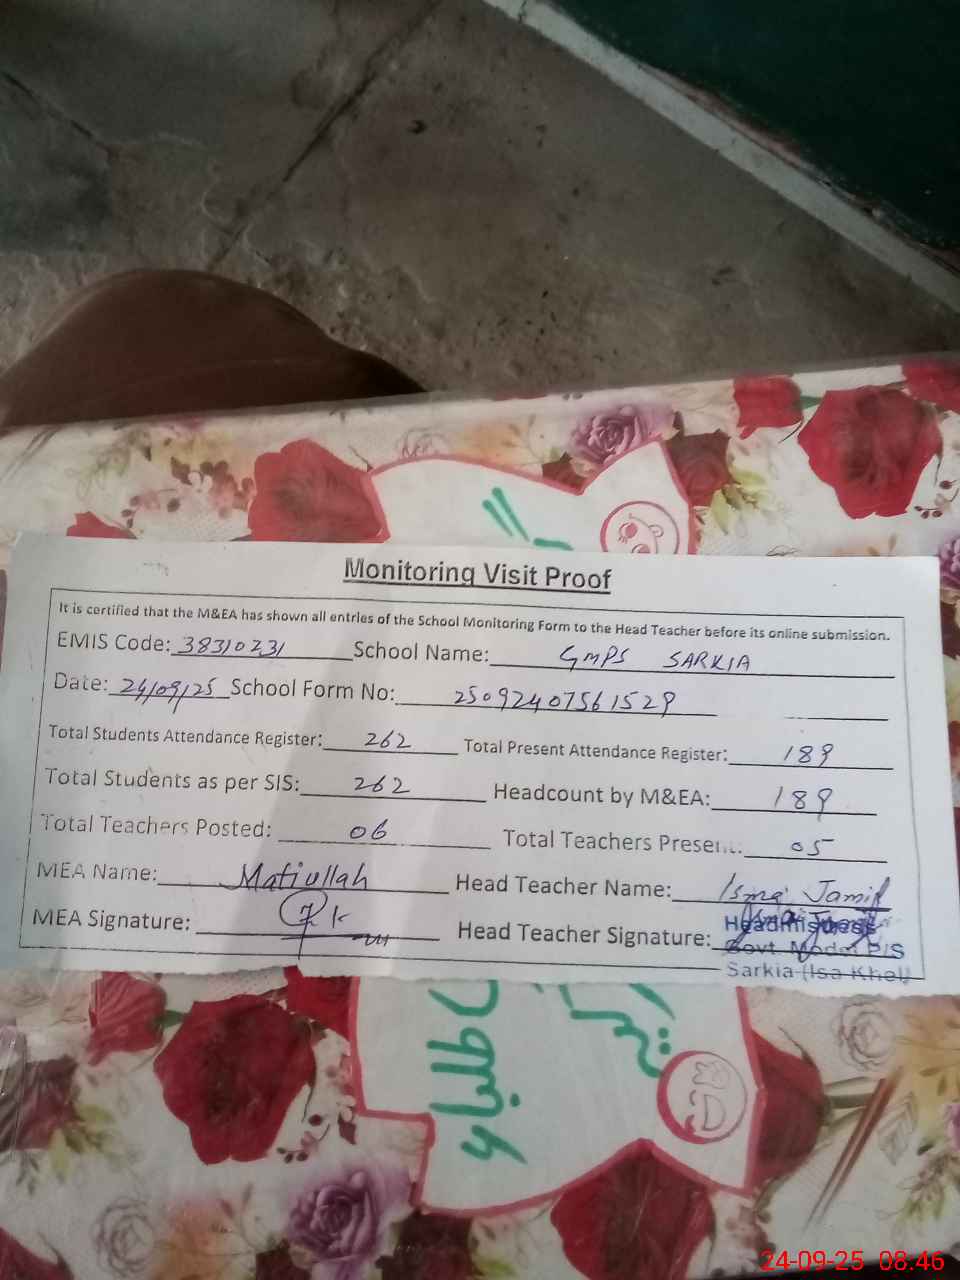 Monitoring Visit Proof
It is certified that the M&EA has shown all entries of the School Monitoring Form to the Head Teacher before its online submission.
EMIS Code: 38310231 School Name: GMPS SARKIA
Date: 24/09/25 School Form No: 25092407561529
Total Students Attendance Register: 262 Total Present Attendance Register: 189
Total Students as per SIS: 262 Headcount by M&EA: 189
Total Teachers Posted: 06 Total Teachers Present: 05
MEA Name: Matiullah Head Teacher Name: Isma Jamil
MEA Signature: Head Teacher Signature:
Headmistress
Govt. Model P/S
Sarkia (Isa Khel)
24-09-25 08:46